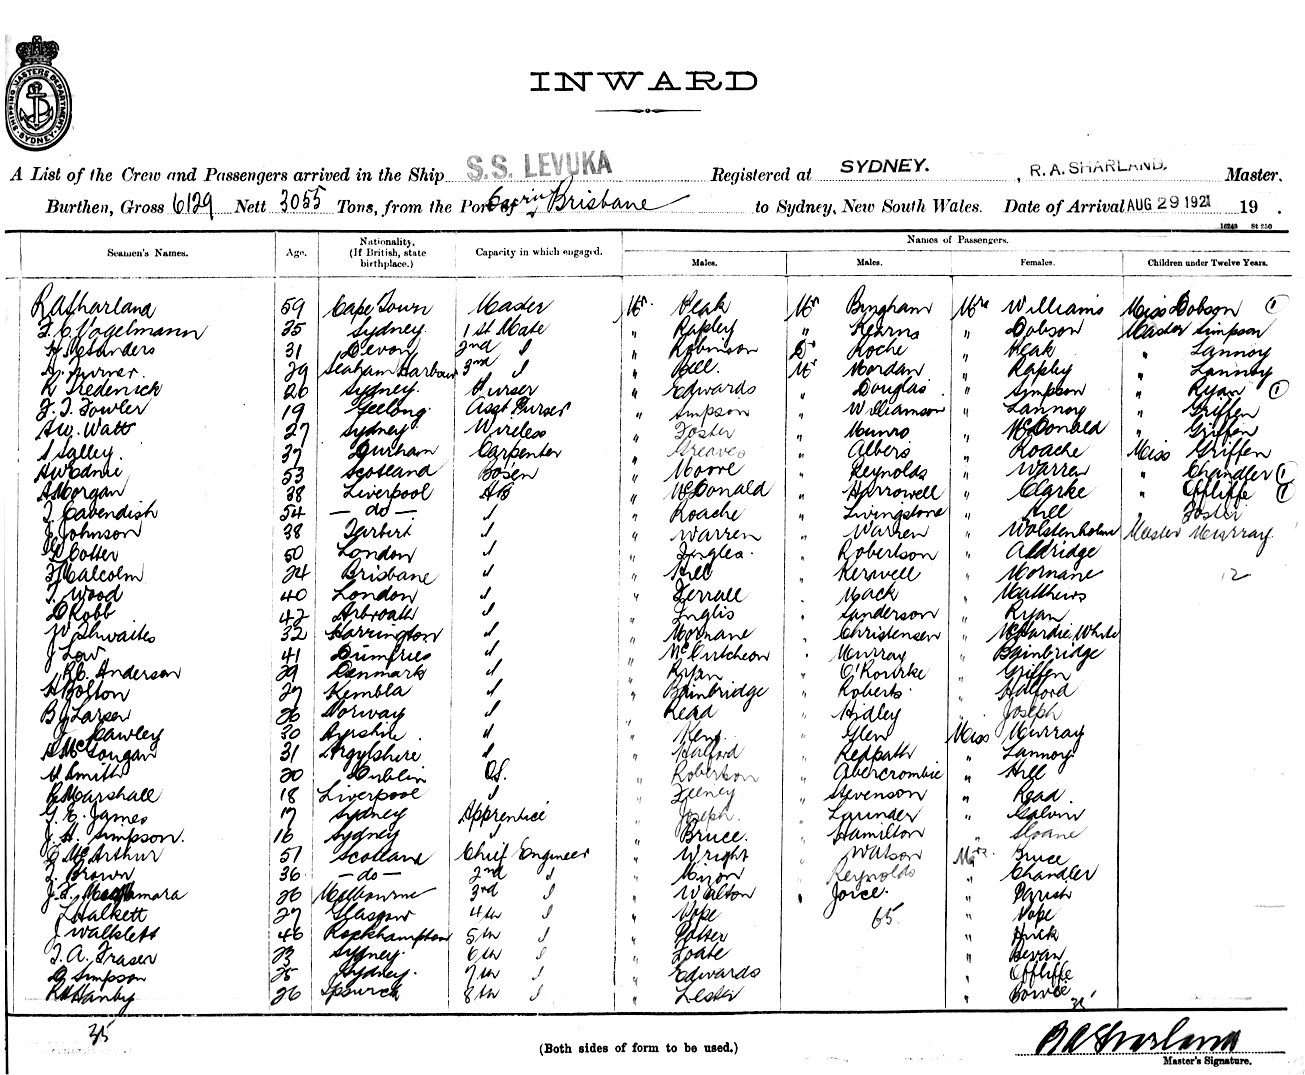 SHIPPING MASTERS DEPARTMENT. SYDNEY
INWARD
A List of the Crew and Passengers arrived in the Ship S.S. LEVUKA Registered at SYDNEY. , R. A. SHARLAND, Master,
Burthen, Gross 6129 Nett 3055 Tons, from the Port of Brisbane to Sydney, New South Wales. Date of Arrival AUG 29 1921 19 .
16249 St 250
Seamen's Names. Age. Nationality, (If British, state birthplace.) Capacity in which engaged. Names of Passengers.
Males. Males. Females. Children under Twelve Years.
RASharland 59 Cape Town Master Mr. Peak Mr Bingham Mrs Williams Miss Dobson 1
F. C. Vogelmann 35 Sydney. 1st Mate " Rapley " Kearns " Dobson Master Simpson
H. Saunders 31 Devon 2nd " " Robinson Dr Roche " Peak " Lannoy
Turner. 29 Seaham Harbour 3rd " " Bell. Mr Mordan " Rapley " Lannoy
K Frederick 26 Sydney. Purser " Edwards " Douglas. " Simpson " Ryan 1
F. T. Fowler 19 Geelong. Asst Purser " Simpson " Williamson " Lannoy " Griffen
AW. Watt 27 Sydney Wireless " Foster " Munro " McDonald " Griffen
S Salley. 37 Durham Carpenter " Greaves " Albers " Roache Miss Griffen
53 Scotland Bosen " Moore " Reynolds " Warren " Chandler 1
A Morgan 38 Liverpool AB " McDonald " Harrowell " Clarke " Cffliffe 1
T. Cavendish 54 — do — " " Roache " Livingstone " Hill " Foster
J Johnson 38 Tarbert " " Warren " Warren " Wolstenholme Master Murray
Cotter 50 London " " Ingles. " Robertson " Aldridge
F Malcolm 24 Brisbane " " Hill " Kerwell " Mornane 12
T. Wood 40 London " " Ferrall " Mack " Matthews
D Robb 42 Arbroath " " Inglis " Sanderson " Ryan
W Thwaites 32 Harrington " " Mornane " Christensen " McHardie White
J Low 41 Dumfries " " McCutcheon " Murray " Bainbridge
R C. Anderson 29 Denmark " " Ryan " O'Rourke " Griffen
H Bolton 27 Kembla " " Bainbridge " Roberts. " Halford
B J Larsen 26 Norway " " Read " Hidley " Joseph
J Cawley 30 Ayrshire. " " Kent. " Glen Miss Murray
A McGougan 31 Argylshire " " Halford " Redpath " Lannoy
Smith 20 Dublin OS. " Robertson " Abercrombie " Hill
R Marshall 18 Liverpool " " Feeney " Stevenson " Read.
G. E. James 17 Sydney Apprentice " Joseph. " Launder " Calvin
J. H. Simpson. 16 Sydney " " Bruce. " Hamilton " Sloane
C McArthur 51 Scotland Chief Engineer " Wright " Watson Mrs. Bruce
T. Brown 36 — do — 2nd " " Mixon " Reynolds " Chandler
26 Melbourne 3rd " " Walton " Joice. " Parish
L Halkett 27 Glasgow 4th " " Pope 65 " Pope
J Walklett 46 Rockhampton 5th " " Potter " Hick
T. A. Fraser 23 Sydney. 6th " " Foate " Bevan
G Simpson 25 Sydney. 7th " " Edwards " Cffliffe
RA Hanby 26 Ipswich 8th " " Lester " Bowie
35
35
(Both sides of form to be used.)
RASharland
Master's Signature.